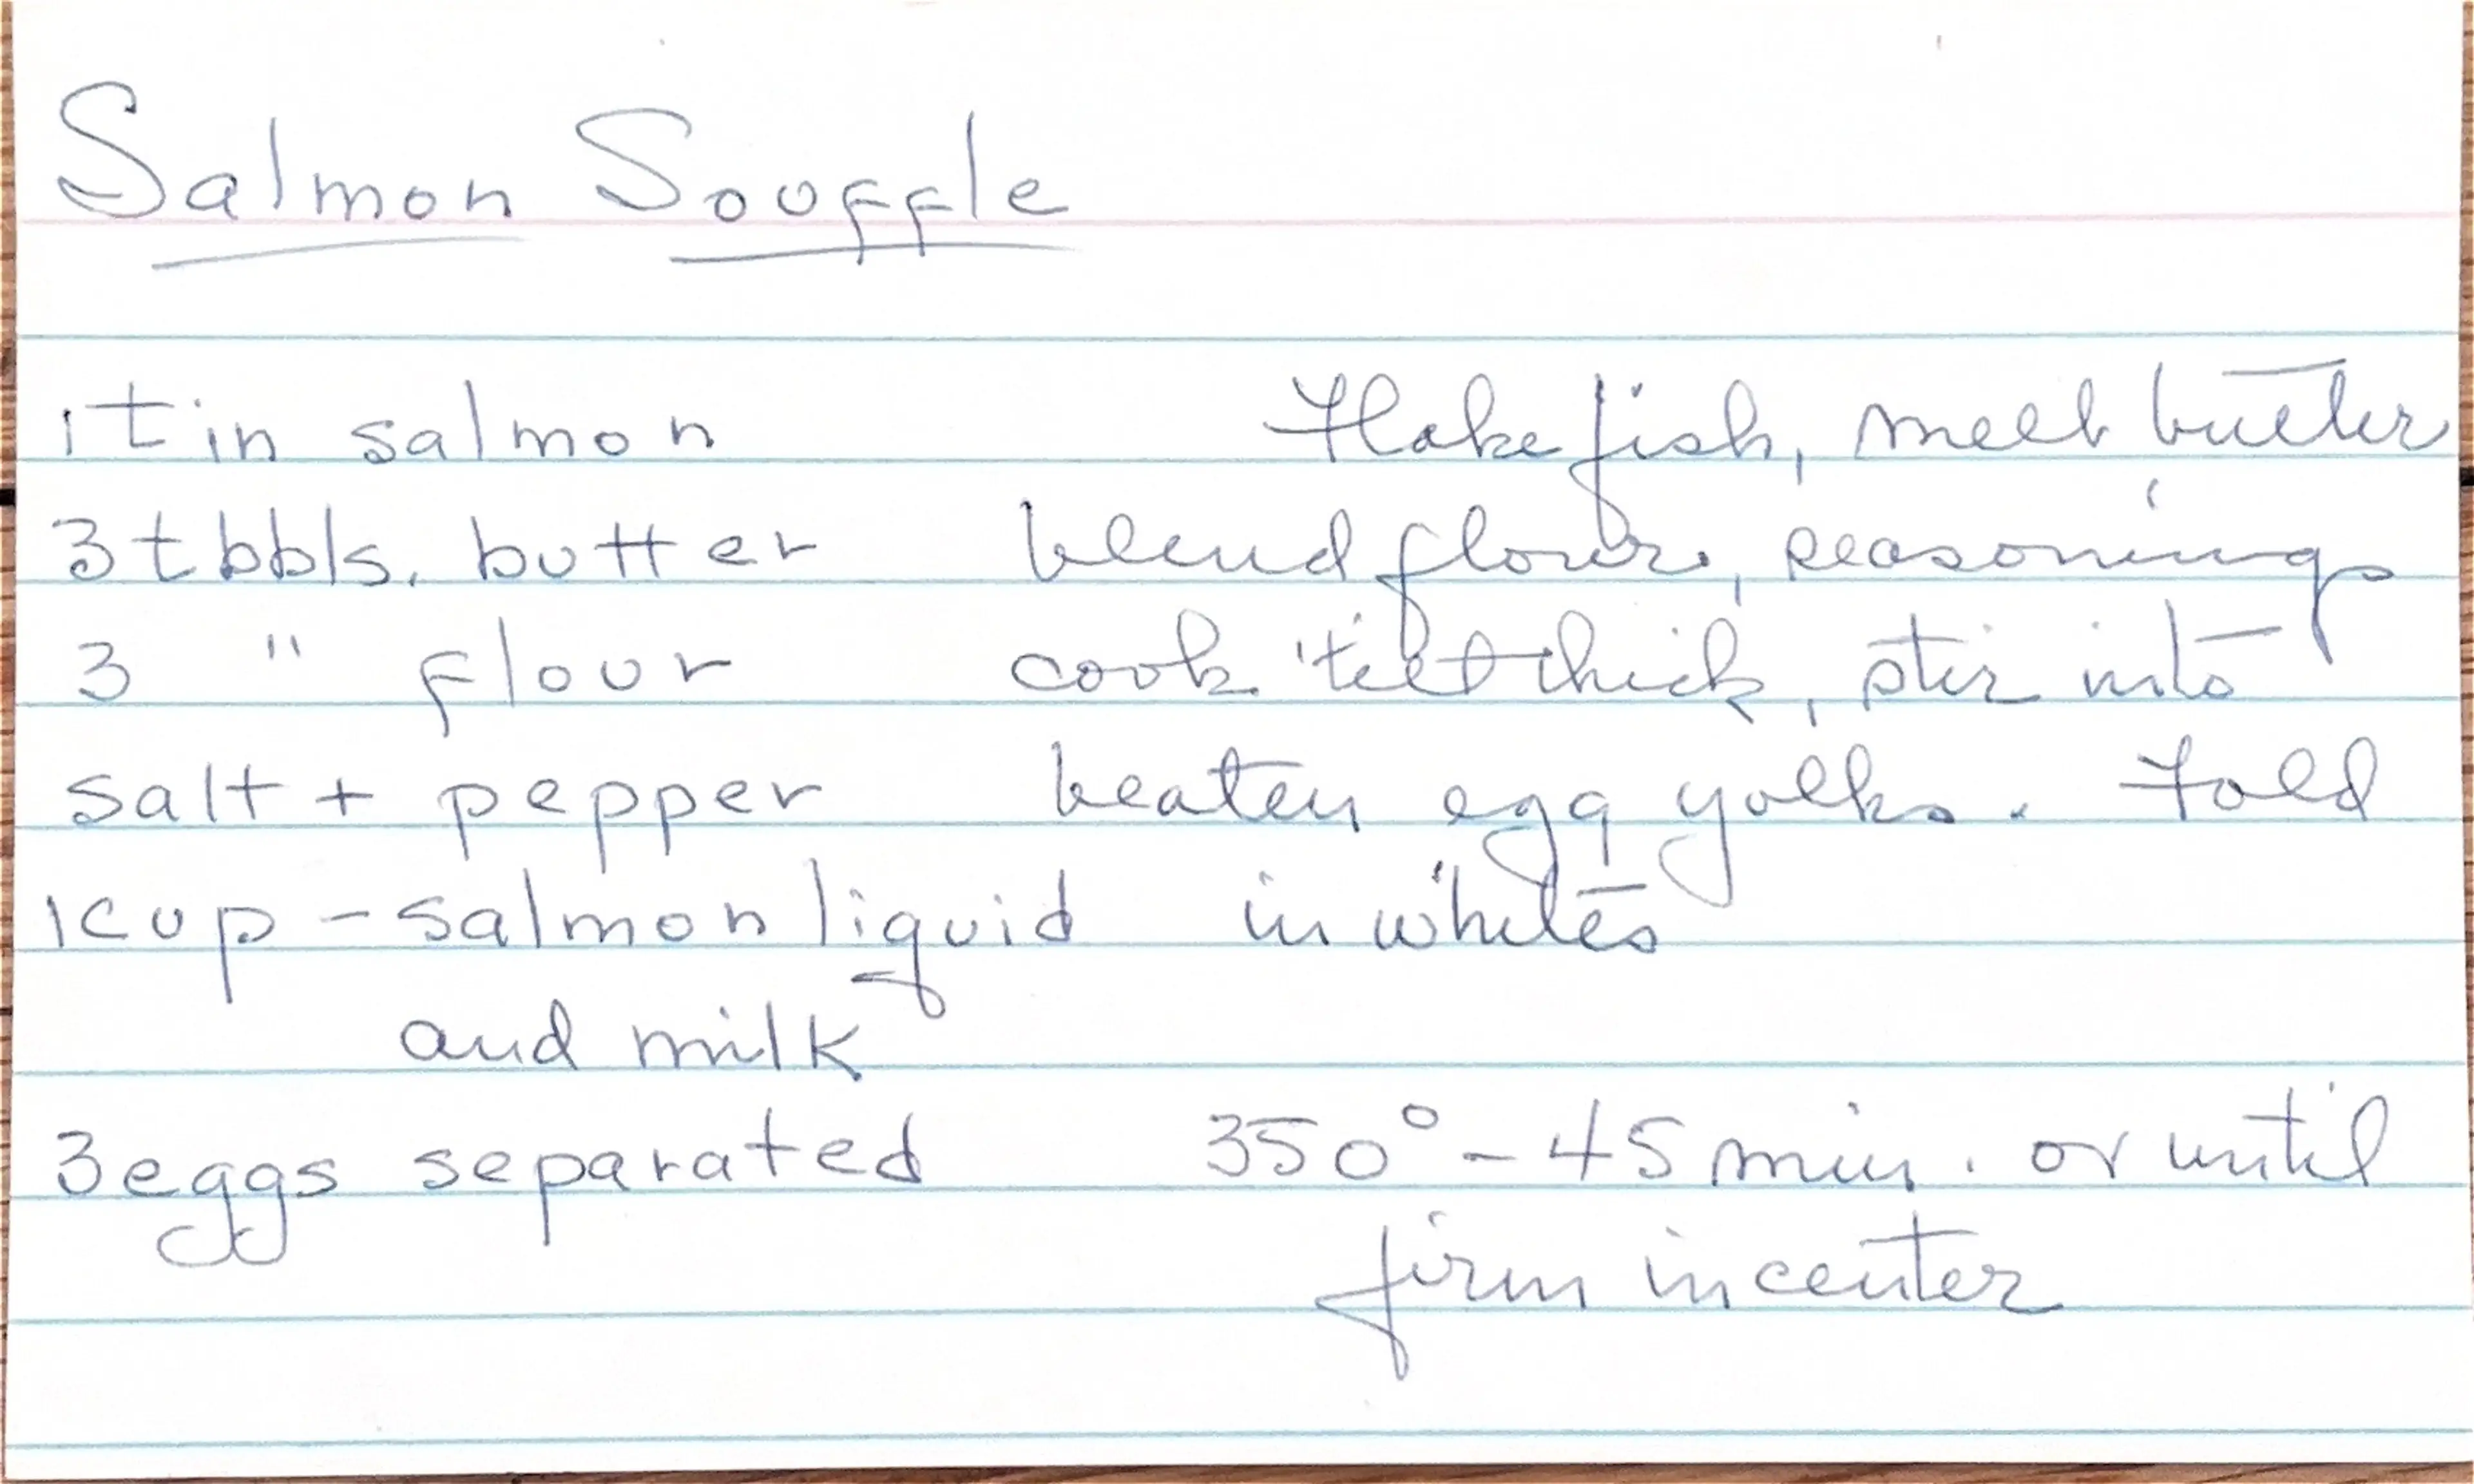 Salmon Souffle
1 tin salmon
3 tbbls. butter
3 " flour
salt + pepper
1 cup - salmon liquid
and milk
3 eggs separated
Flake fish, melt butter
blend flour, seasonings
cook 'til thick, stir into
beaten egg yolks. Fold
in whites
350° - 45 min. or until
firm in center